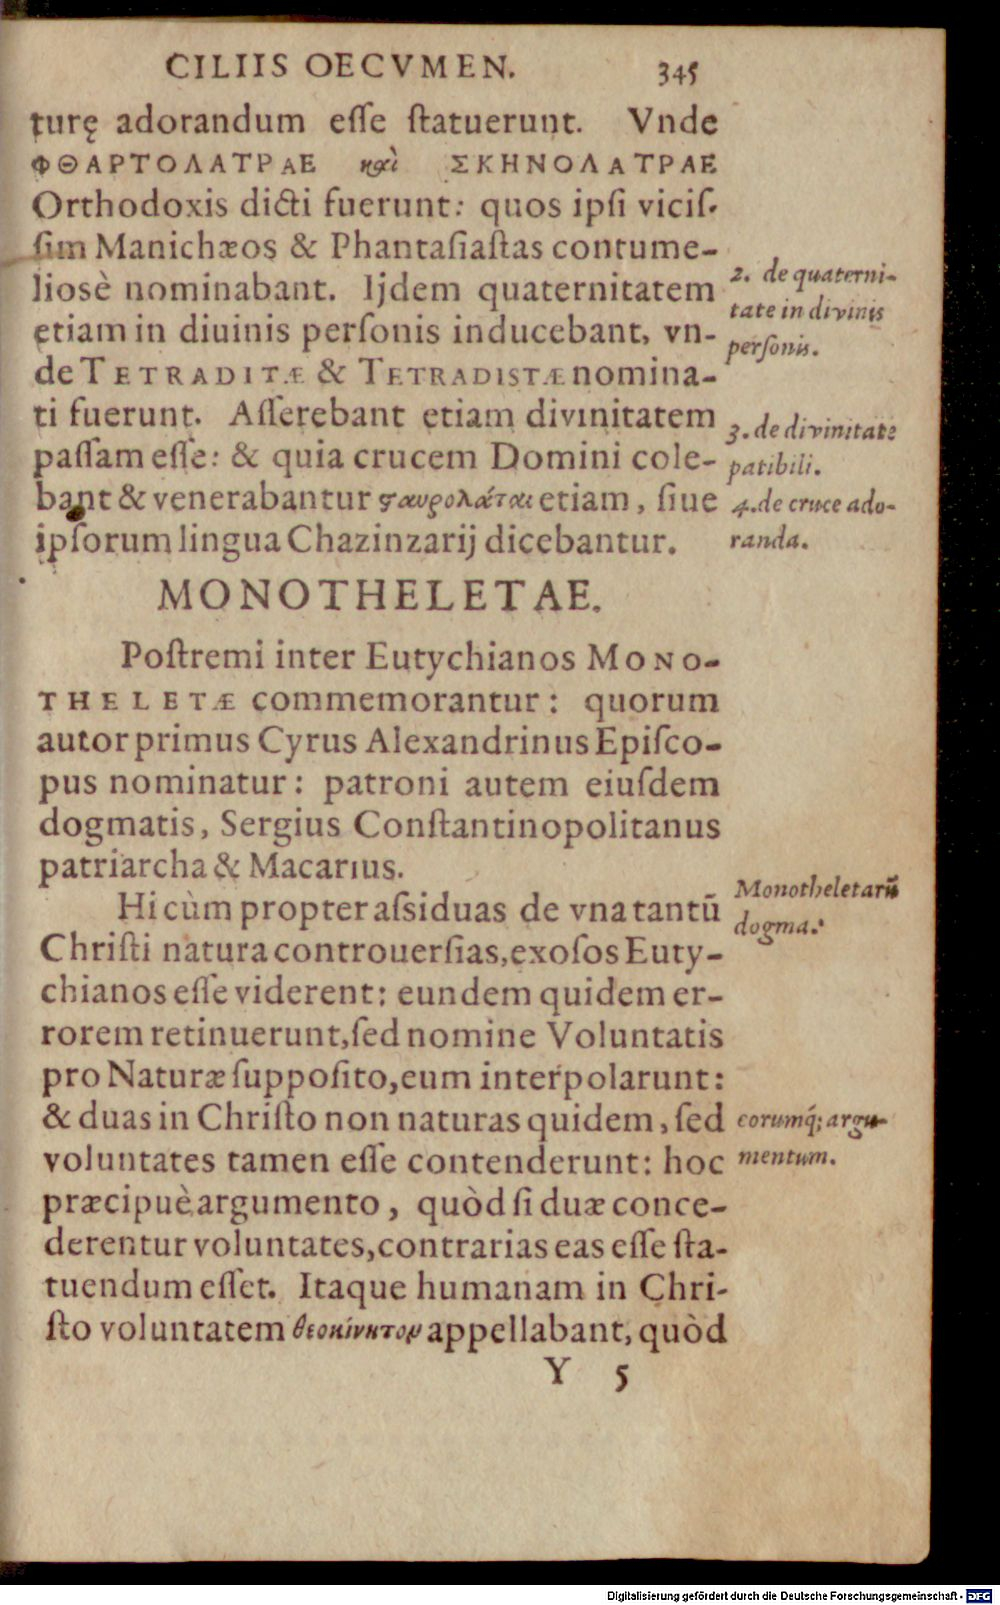 CILIIS OECVMEN. 345
turę adorandum eſſe ſtatuerunt. Vnde
ΦΘΑΡΤΟΛΑΤΡΑΕ καὶ ΣΚΗΝΟΛΑΤΡΑΕ
Orthodoxis dicti fuerunt: quos ipſi viciſ-
ſim Manichæos & Phantaſiaſtas contume-
lioſè nominabant. Ijdem quaternitatem
etiam in diuinis perſonis inducebant, vn-
de TETRADITÆ & TETRADISTÆ nomina-
ti fuerunt. Aſſerebant etiam divinitatem
paſſam eſſe: & quia crucem Domini cole-
bant & venerabantur ϛαυρολάται etiam, ſiue
ipſorum lingua Chazinzarij dicebantur.
2. de quaterni-
tate in divinis
perſonis.
3. de divinitate
patibili.
4. de cruce ado-
randa.
MONOTHELETAE.
Poſtremi inter Eutychianos MONO-
THELETÆ commemorantur: quorum
autor primus Cyrus Alexandrinus Epiſco-
pus nominatur: patroni autem eiuſdem
dogmatis, Sergius Conſtantinopolitanus
patriarcha & Macarius.
Hi cùm propter aſsiduas de vna tantū
Chriſti natura controuerſias, exoſos Euty-
chianos eſſe viderent: eundem quidem er-
rorem retinuerunt, ſed nomine Voluntatis
pro Naturæ ſuppoſito, eum interpolarunt:
& duas in Chriſto non naturas quidem, ſed
voluntates tamen eſſe contenderunt: hoc
præcipuè argumento, quòd ſi duæ conce-
derentur voluntates, contrarias eas eſſe ſta-
tuendum eſſet. Itaque humanam in Chri-
ſto voluntatem θεοκίνητον appellabant, quòd
Monotheletarū
dogma:
eorumq́; argu-
mentum.
Y 5
Digitalisierung gefördert durch die Deutsche Forschungsgemeinschaft - DFG